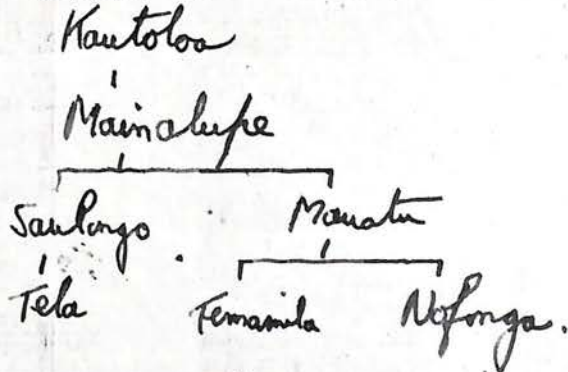 Kautoloa
Mainalupe
Saulongo Mauatu
Tela Femamila Nofonga.